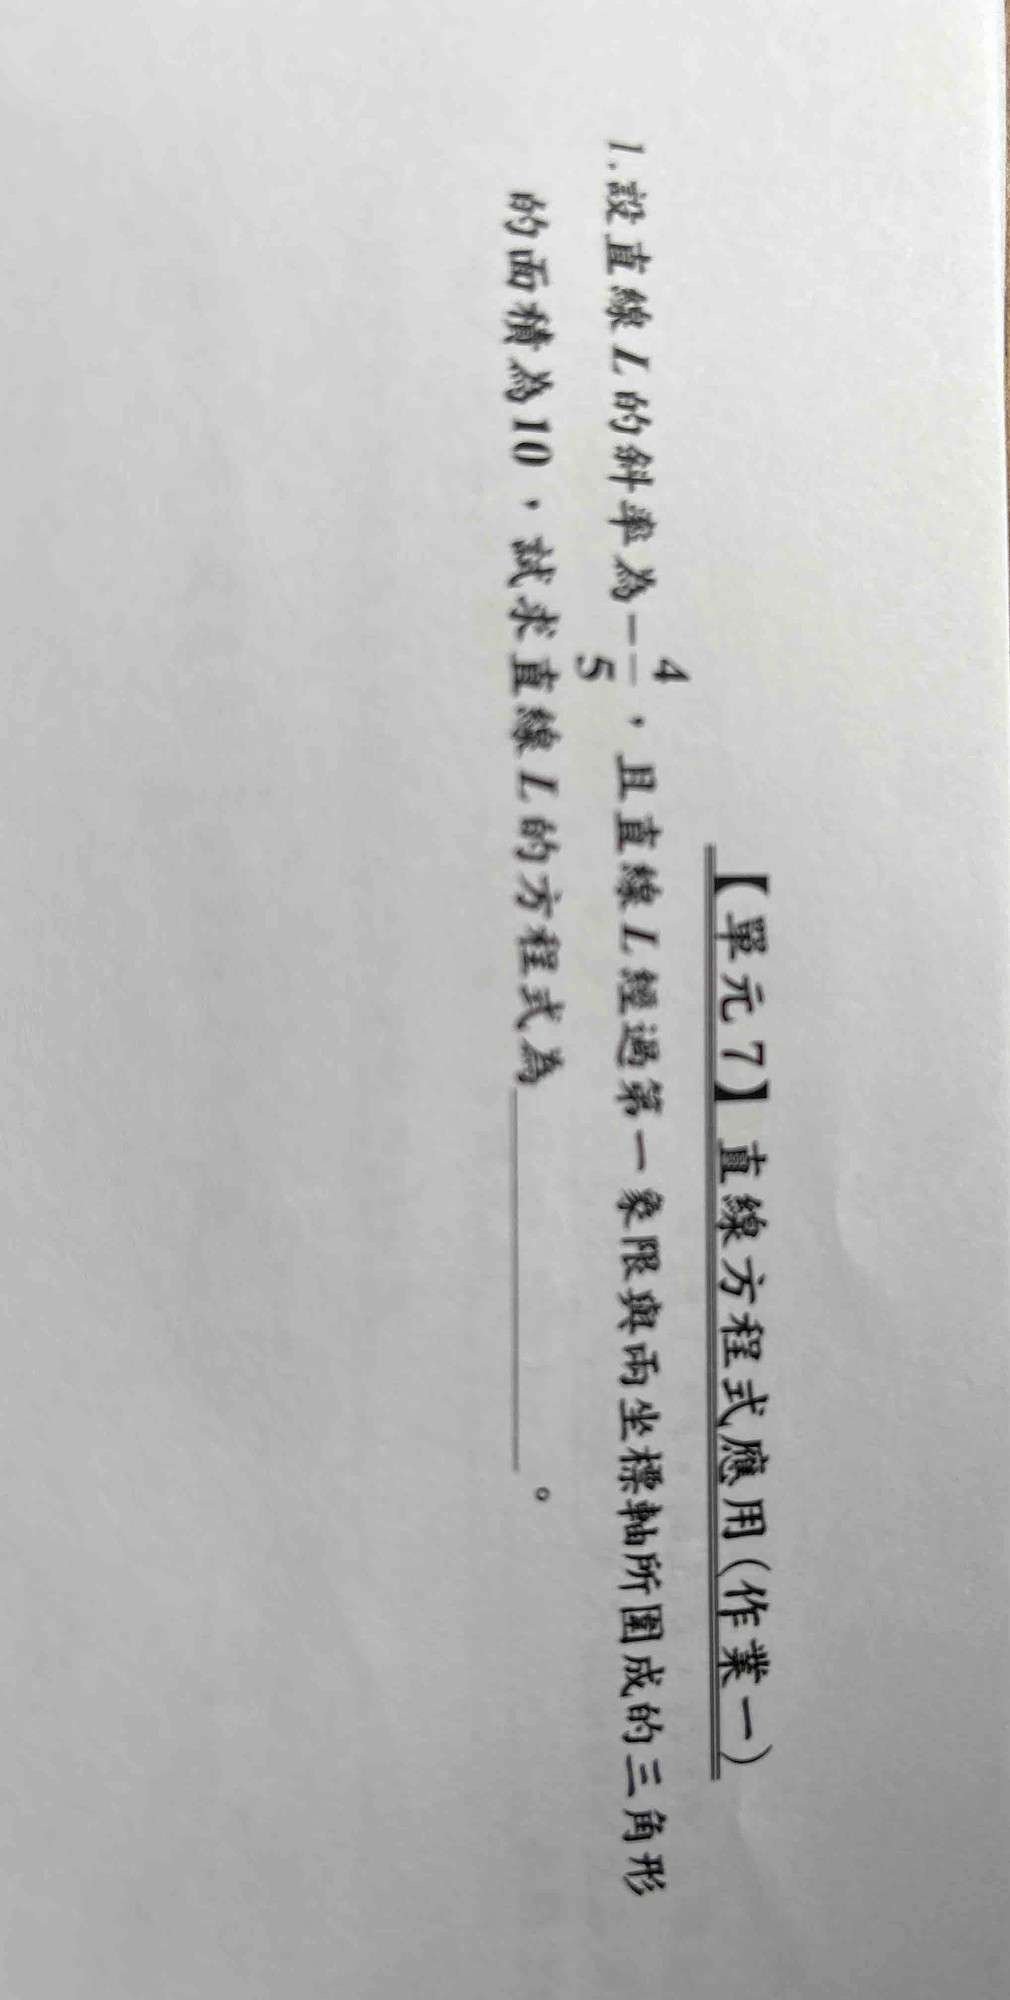 【單元 7】直線方程式應用(作業一)
1.設直線 L 的斜率為 -4/5，且直線 L 經過第一象限與兩坐標軸所圍成的三角形
的面積為10，試求直線 L 的方程式為________。